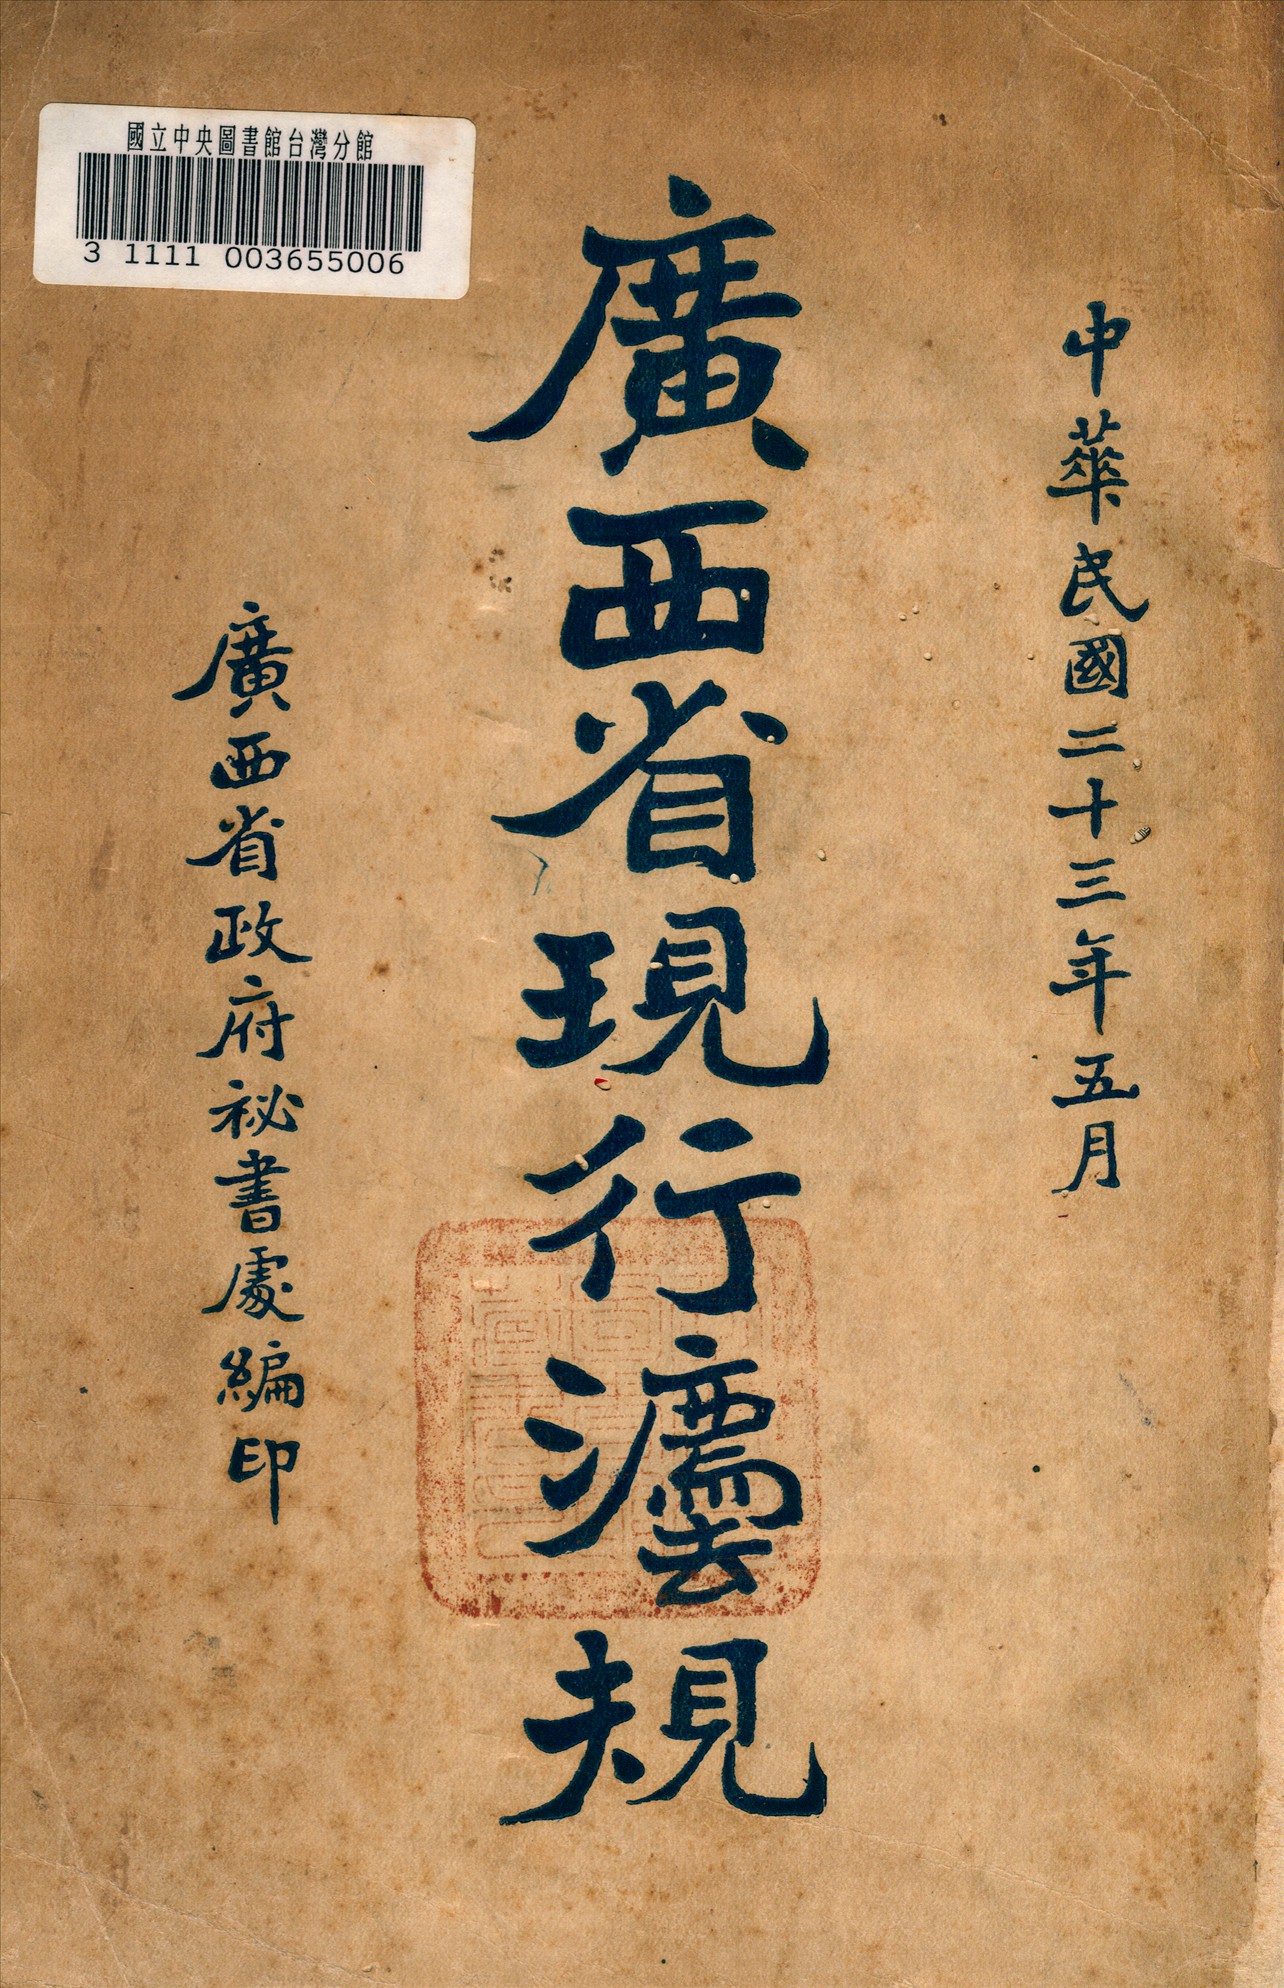 國立中央圖書館台灣分館
3 1111 003655006
中華民國二十三年五月
廣西省現行灋規
廣西省政府祕書處編印